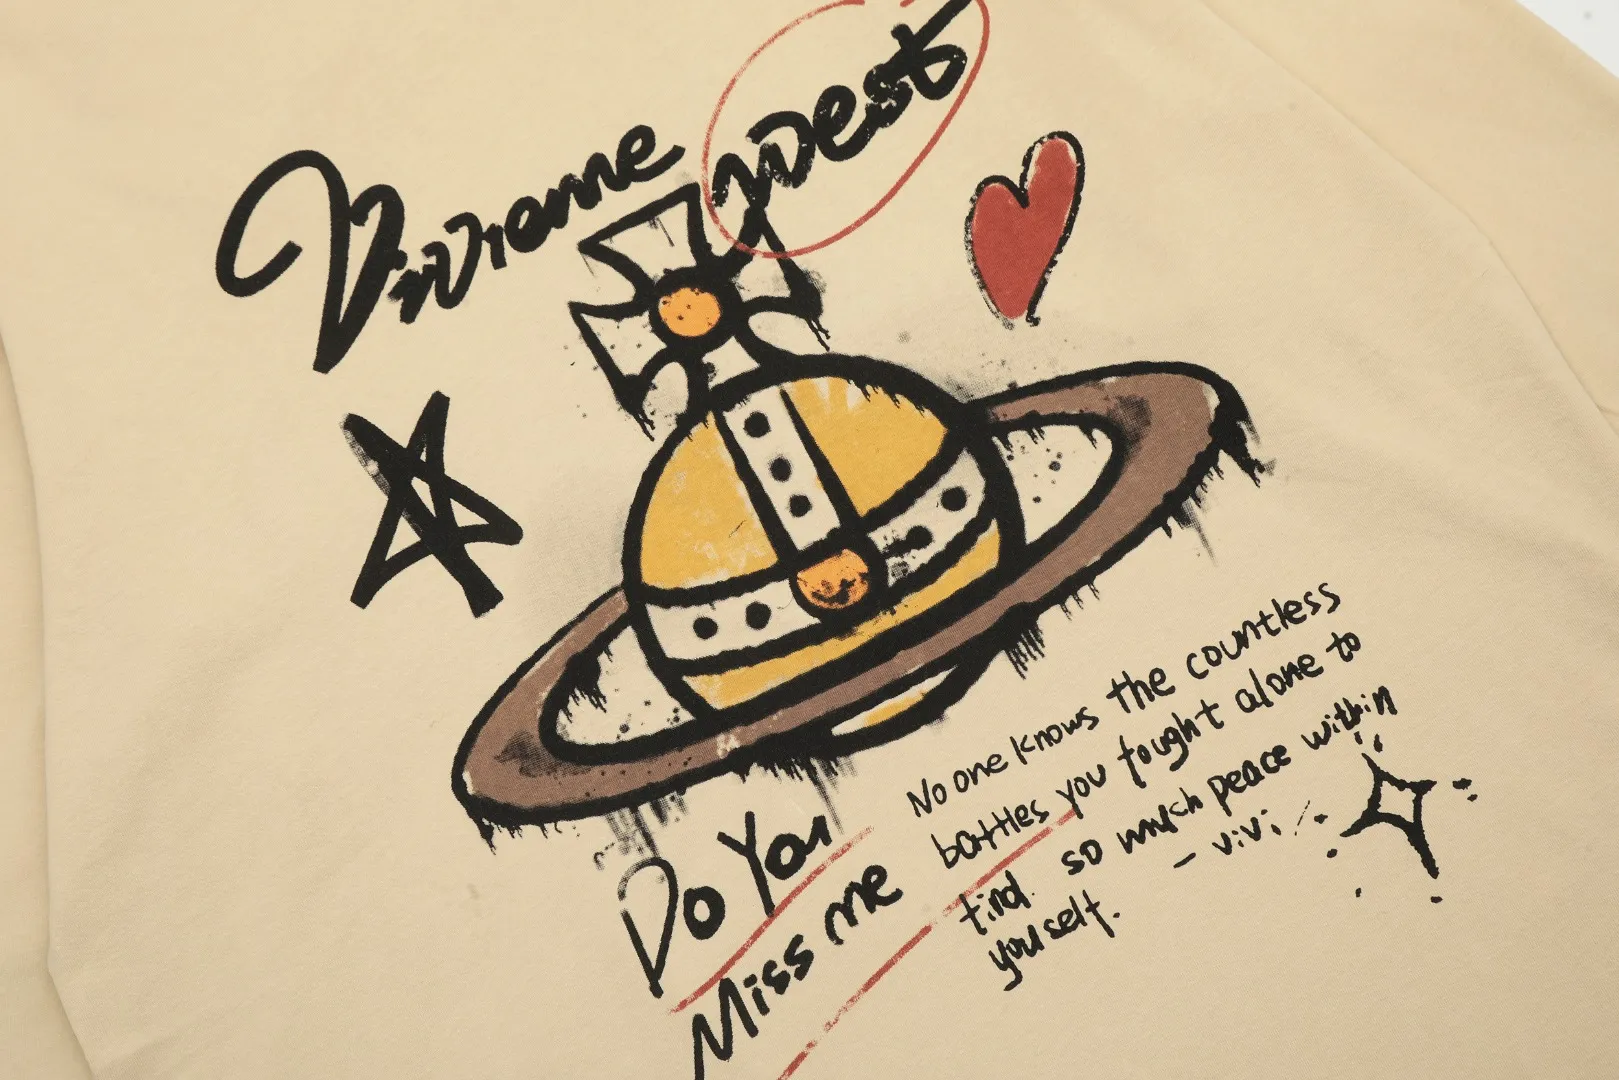 Vivienne West
Do You
Miss me
No one knows the countless
battles you fought alone to
find. so much peace within
yourself. - vivi